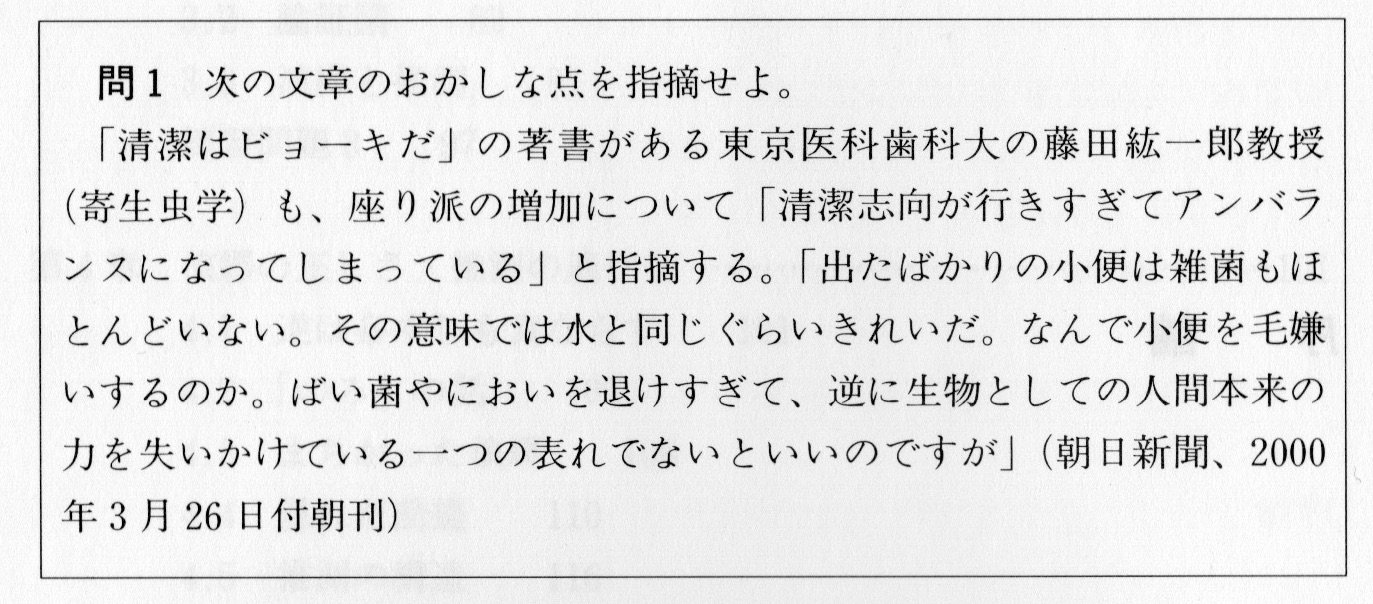 問1　次の文章のおかしな点を指摘せよ。
「清潔はビョーキだ」の著書がある東京医科歯科大の藤田紘一郎教授
(寄生虫学)も、座り派の増加について「清潔志向が行きすぎてアンバラ
ンスになってしまっている」と指摘する。「出たばかりの小便は雑菌もほ
とんどいない。その意味では水と同じぐらいきれいだ。なんで小便を毛嫌
いするのか。ばい菌やにおいを退けすぎて、逆に生物としての人間本来の
力を失いかけている一つの表れでないといいのですが」(朝日新聞、2000
年3月26日付朝刊)